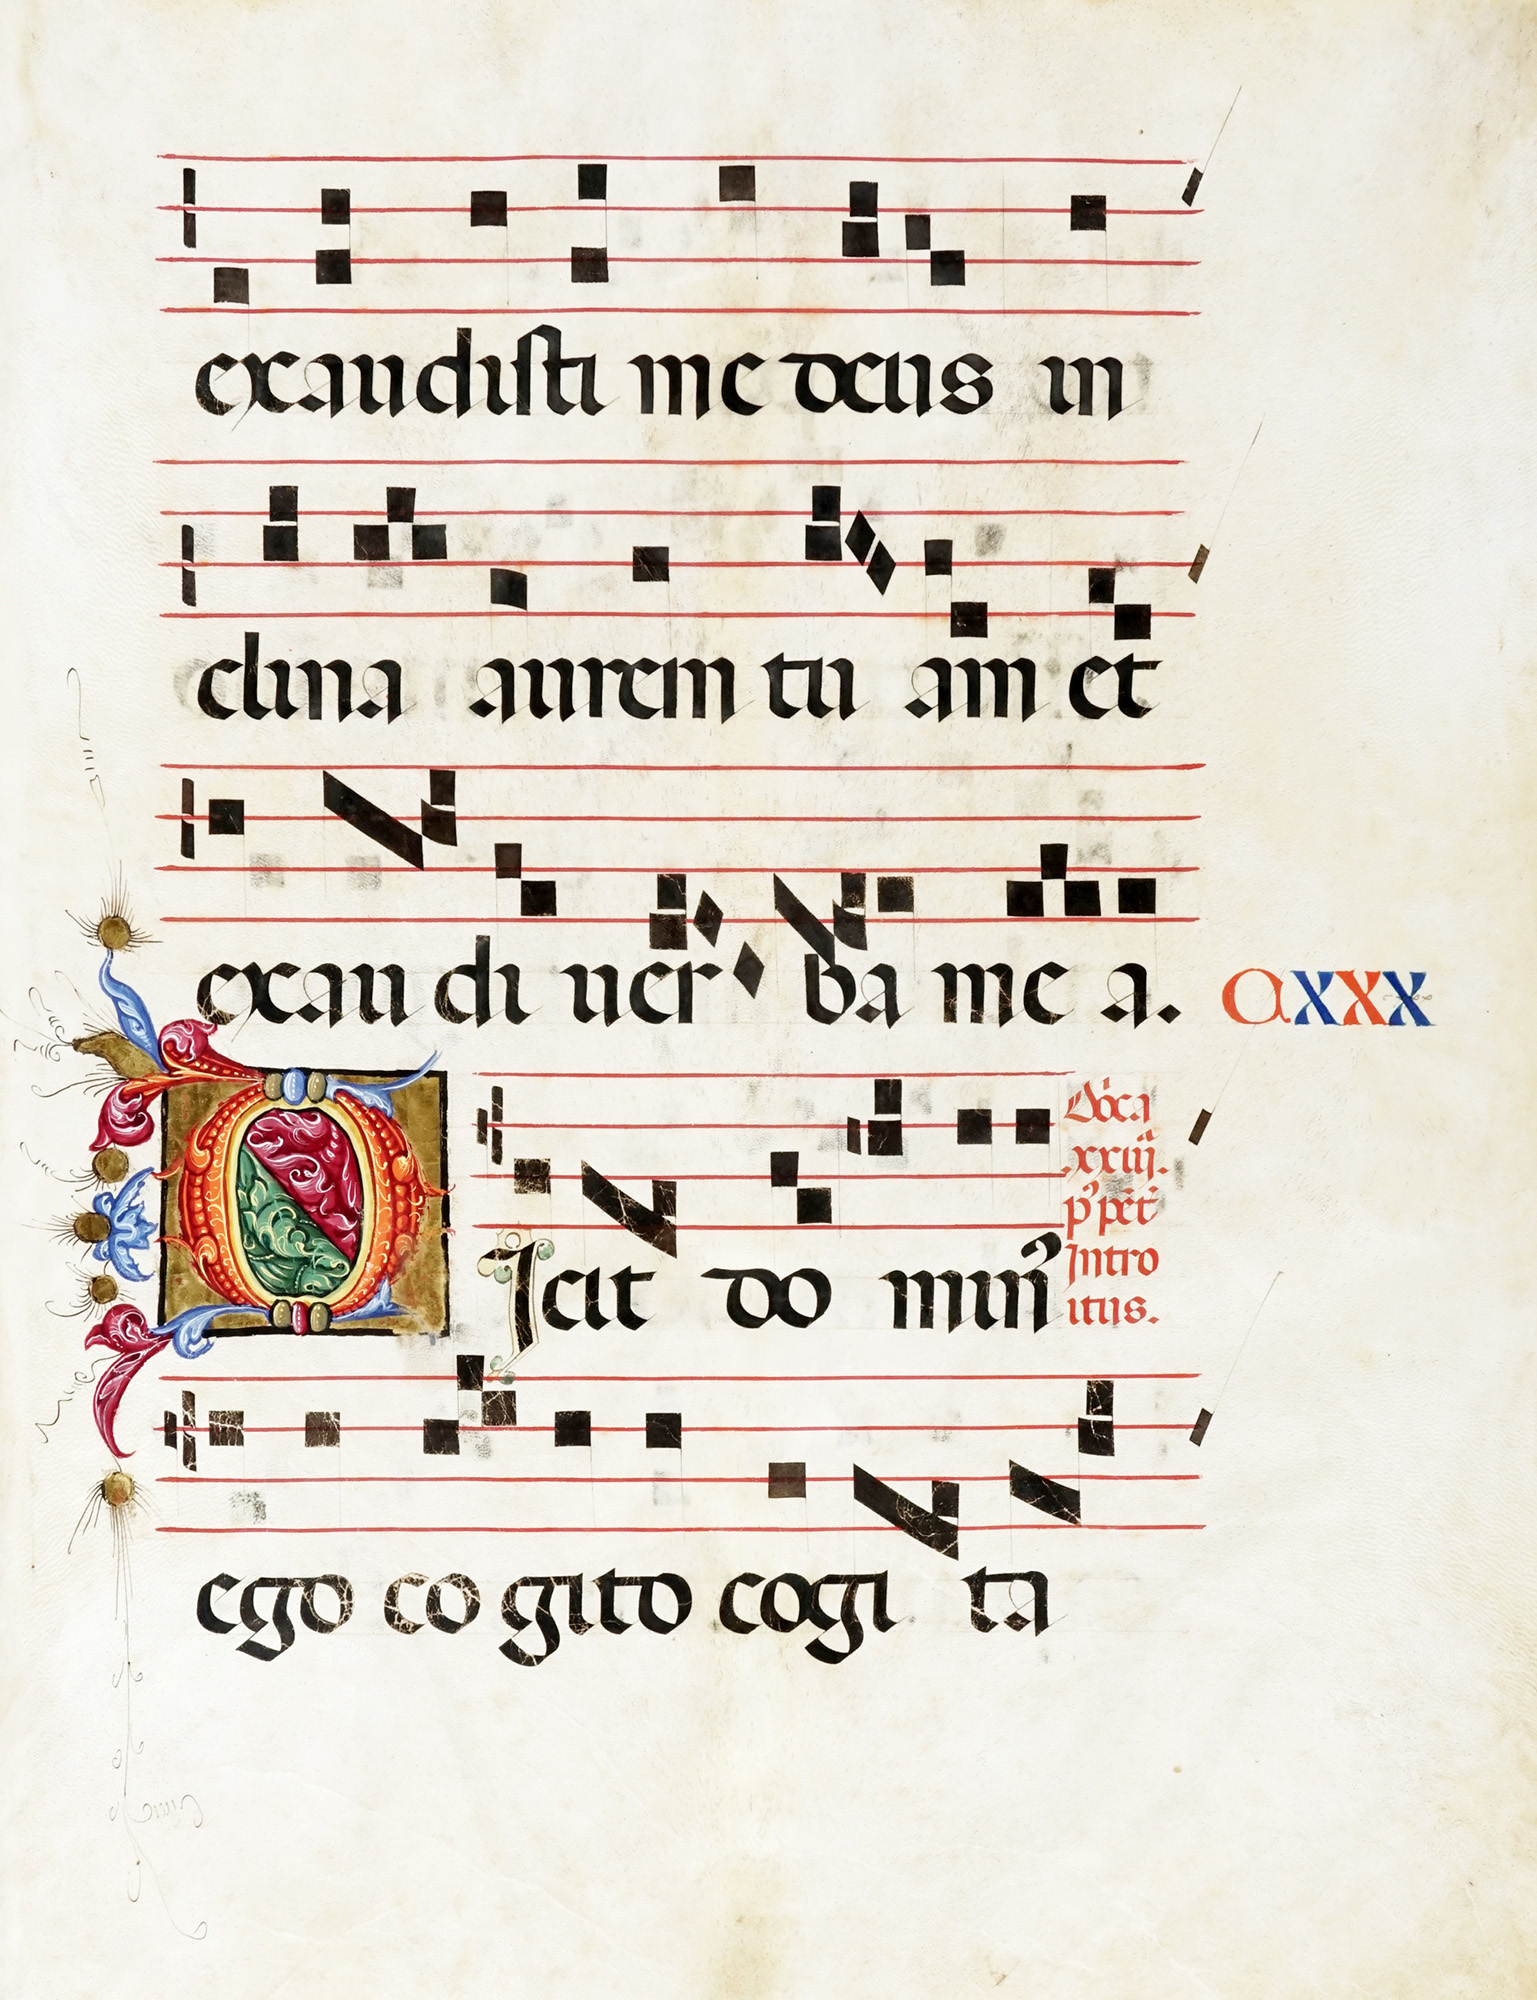 exaudisti me deus in
clina aurem tu am et
exau di uer ba me a.
CXXX
Dicit do min᾽
Dõca
.xxiij.
p᾽ pẽt̃
Intro
itus.
ego co gito cogi ta